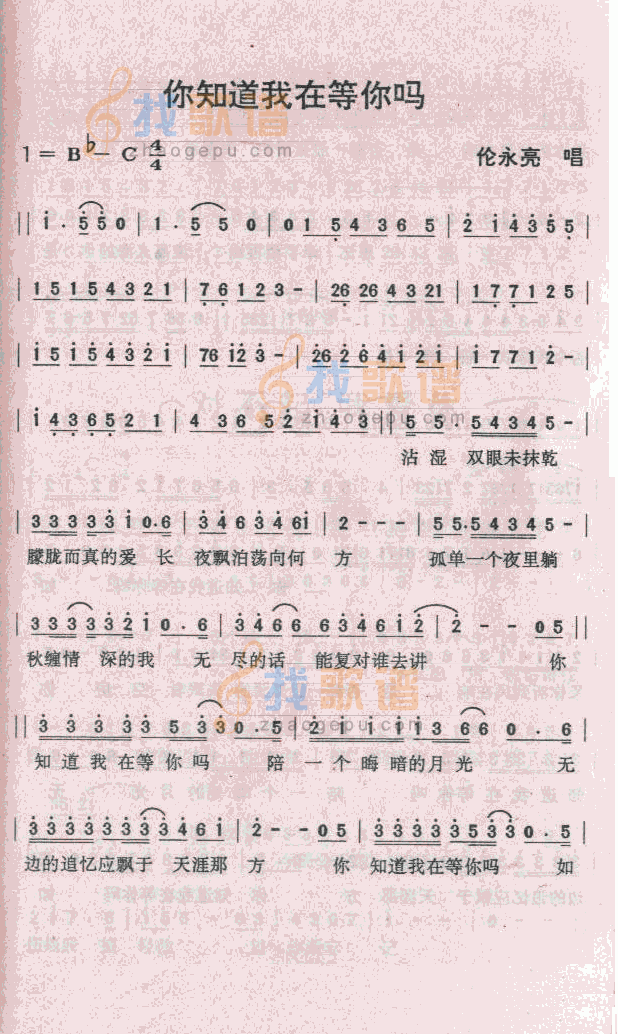 你知道我在等你吗
找歌谱
zhaogepu.com
1 = B♭— C 4/4
伦永亮 唱
‖ i · 5 5 0 | 1 · 5 5 0 | 0 1 5 4 3 6 5 | 2 1 4 3 5 5 |
| 1 5 1 5 4 3 2 1 | 7 6 1 2 3 - | 26 26 4 3 21 | 1 7 7 1 2 5
| 1 5 1 5 4 3 2 1 | 76 12 3 - | 26 2 6 4 1 2 1 | 1 7 7 1 2 -
找歌谱
zhaogepu.com
| 1 4 3 6 5 2 1 | 4 3 6 5 2 1 4 3 ‖ 5 5 · 5 4 3 4 5 - |
沾 湿 双眼未抹乾
| 3 3 3 3 3 1 0 · 6 | 3 4 6 3 4 61 | 2 - - - | 5 5 · 5 4 3 4 5 - |
朦胧而真的爱 长 夜飘泊荡向何 方 孤单一个夜里躺
| 3 3 3 3 3 2 1 0 · 6 | 3 4 6 6 6 3 4 6 1 2 | 2 - - 0 5 ‖
秋缠情 深的我 无 尽的话 能复对谁去讲 你
找歌谱
zhaogepu.com
‖ 3 3 3 3 3 5 3 3 0 · 5 | 2 1 1 1 1 3 6 6 0 · 6 |
知 道 我 在 等 你 吗 陪 一 个 晦 暗 的 月 光 无
| 3 3 3 3 3 3 3 3 3 4 6 1 | 2 - - 0 5 | 3 3 3 3 3 5 3 3 0 · 5 |
边的道忆应飘于 天涯那 方 你 知道我在等你吗 如